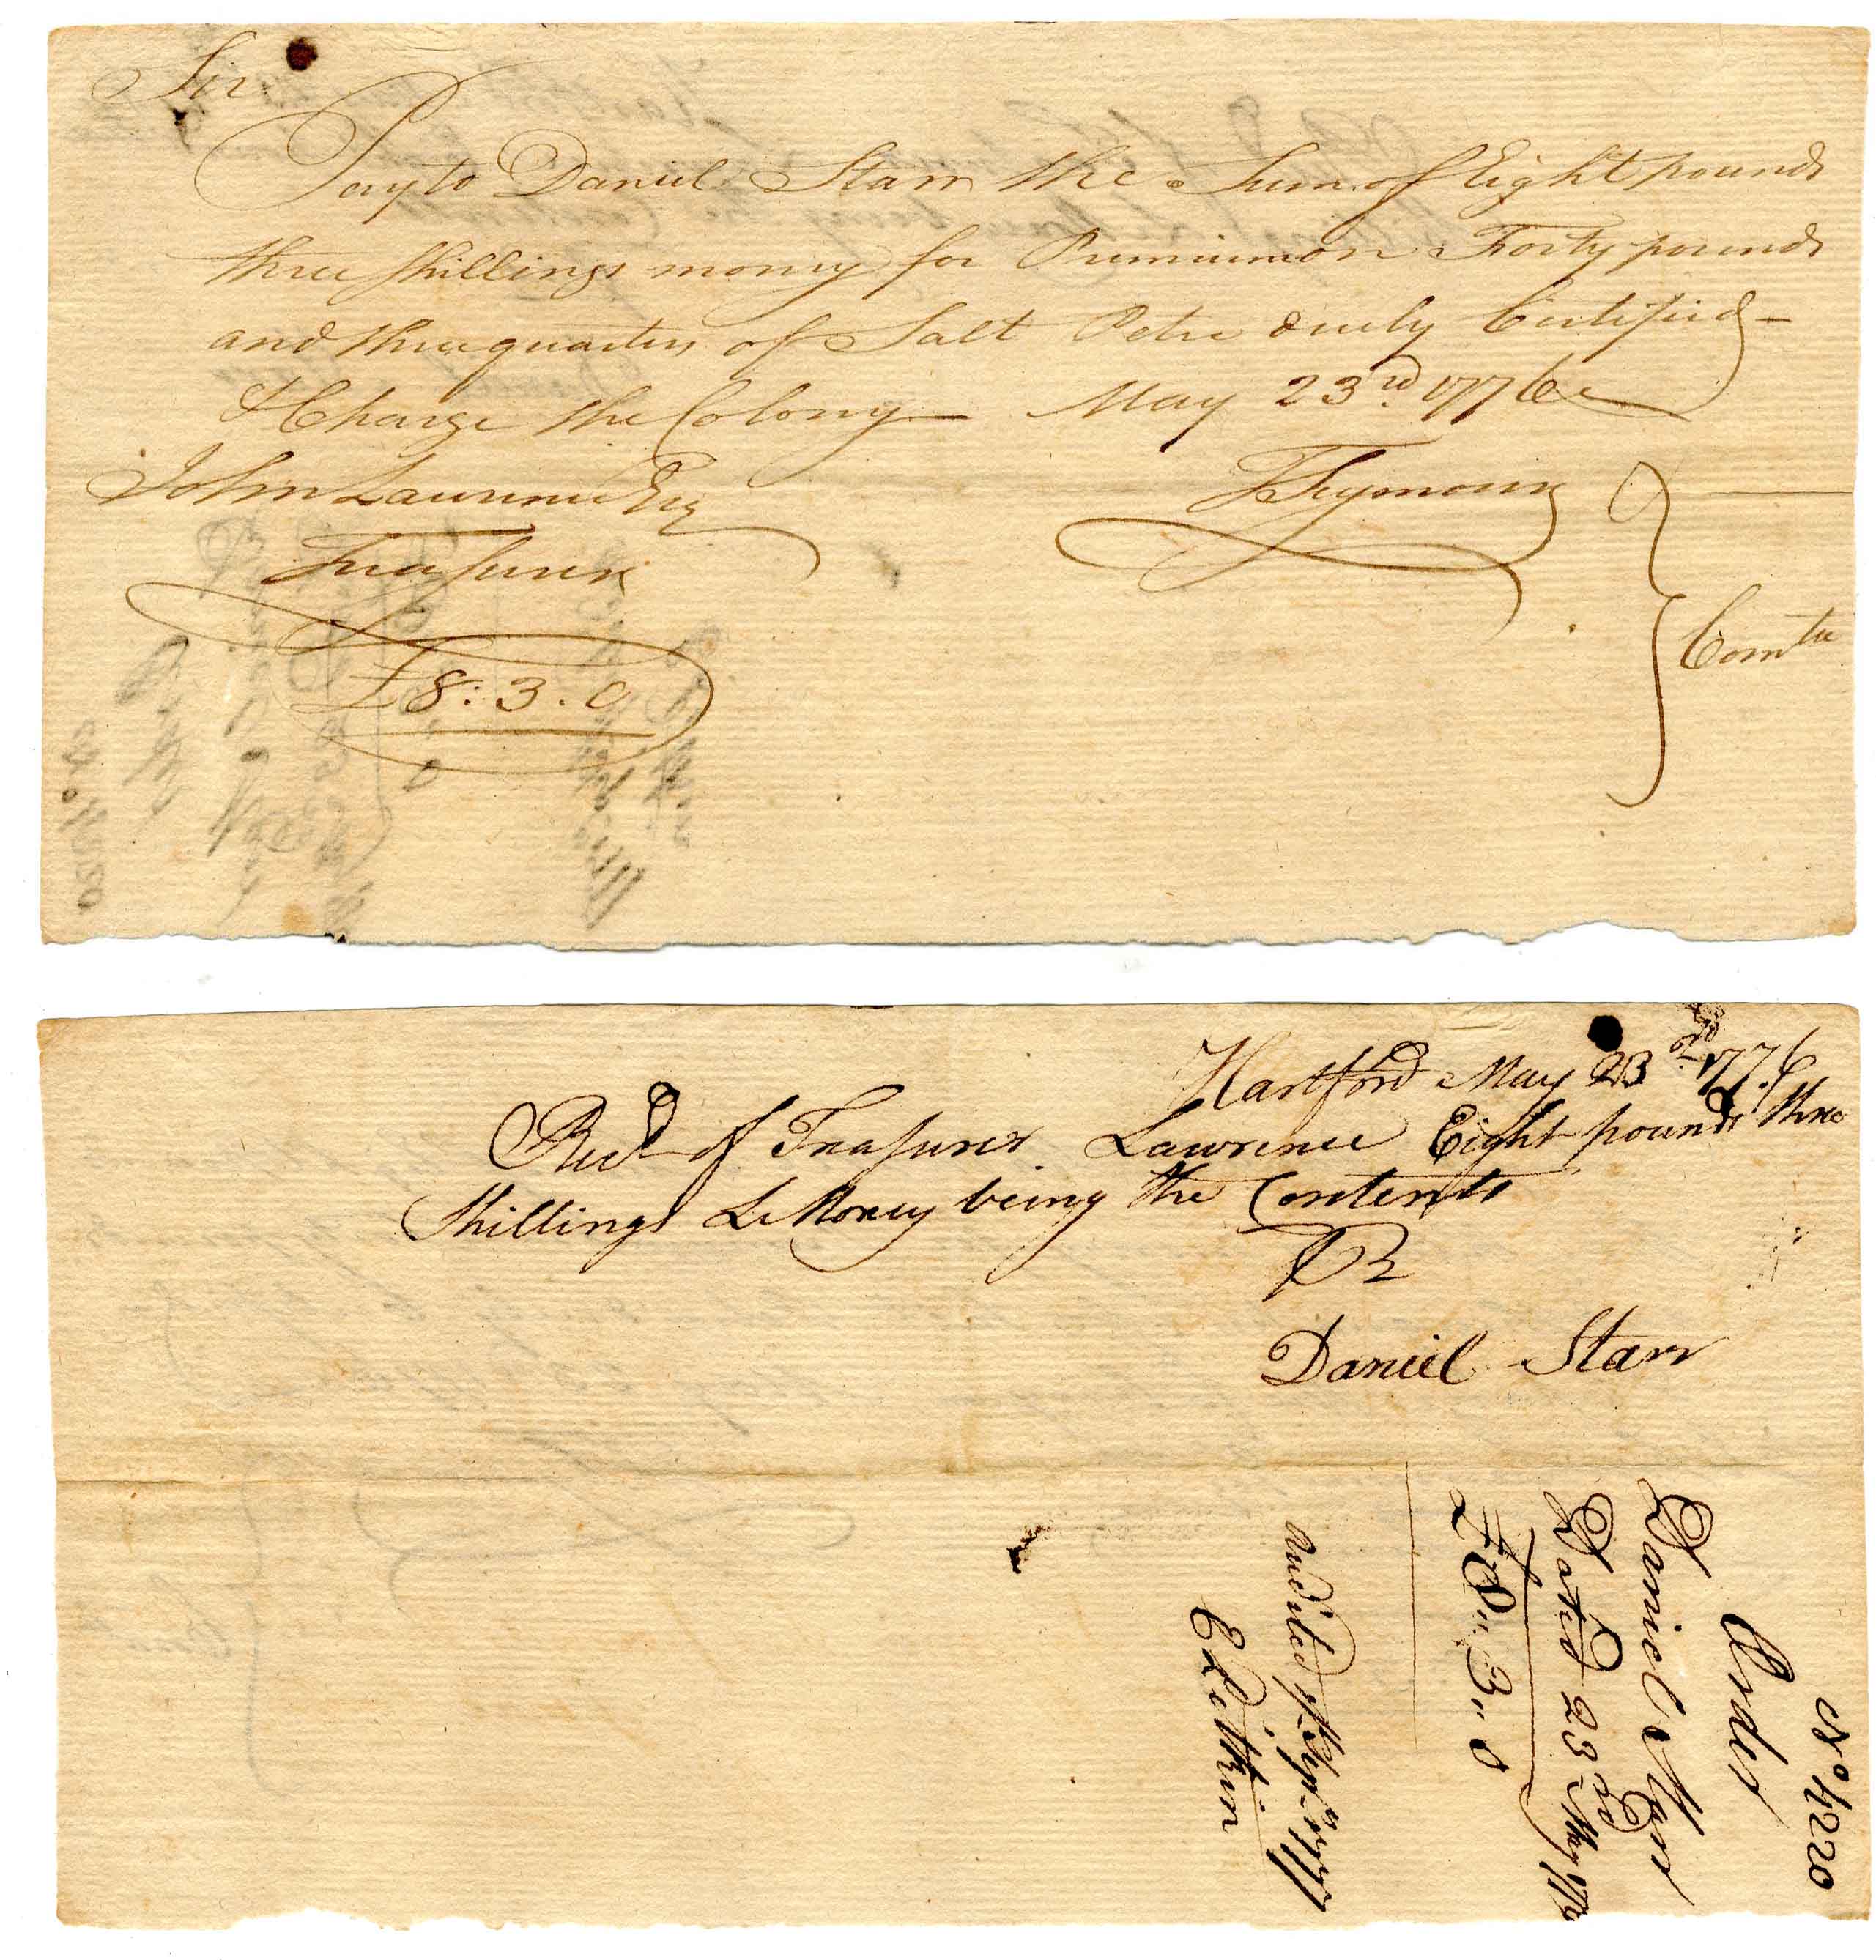 Sir
Pay to Daniel Starr the Sum of Eight pounds
three shillings money for Premium on Forty pounds
and three quarters of Salt Petre duely Certified —
& Charge the Colony — May 23rd 1776
John Lawrence Esq
T Seymour
Treasurer
Comtee
£8:3.0
Hartford May 23rd 1776
Recd of Treasurer Lawrence Eight pounds three
Shillings L Money being the Contents
Pr
Daniel Starr
No 4220
Order
Daniel Starr
Dated 23rd May 1776
£8"3"0
Sept 1777